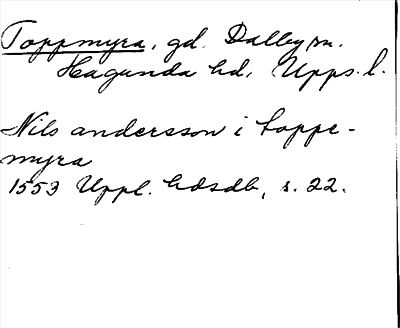 Toppmyra, gd. Dalby sn.
Hagunda hd, Upps. l.
Nils andersson i toppe-
myra
1553 Uppl. hdsdb, s. 22.